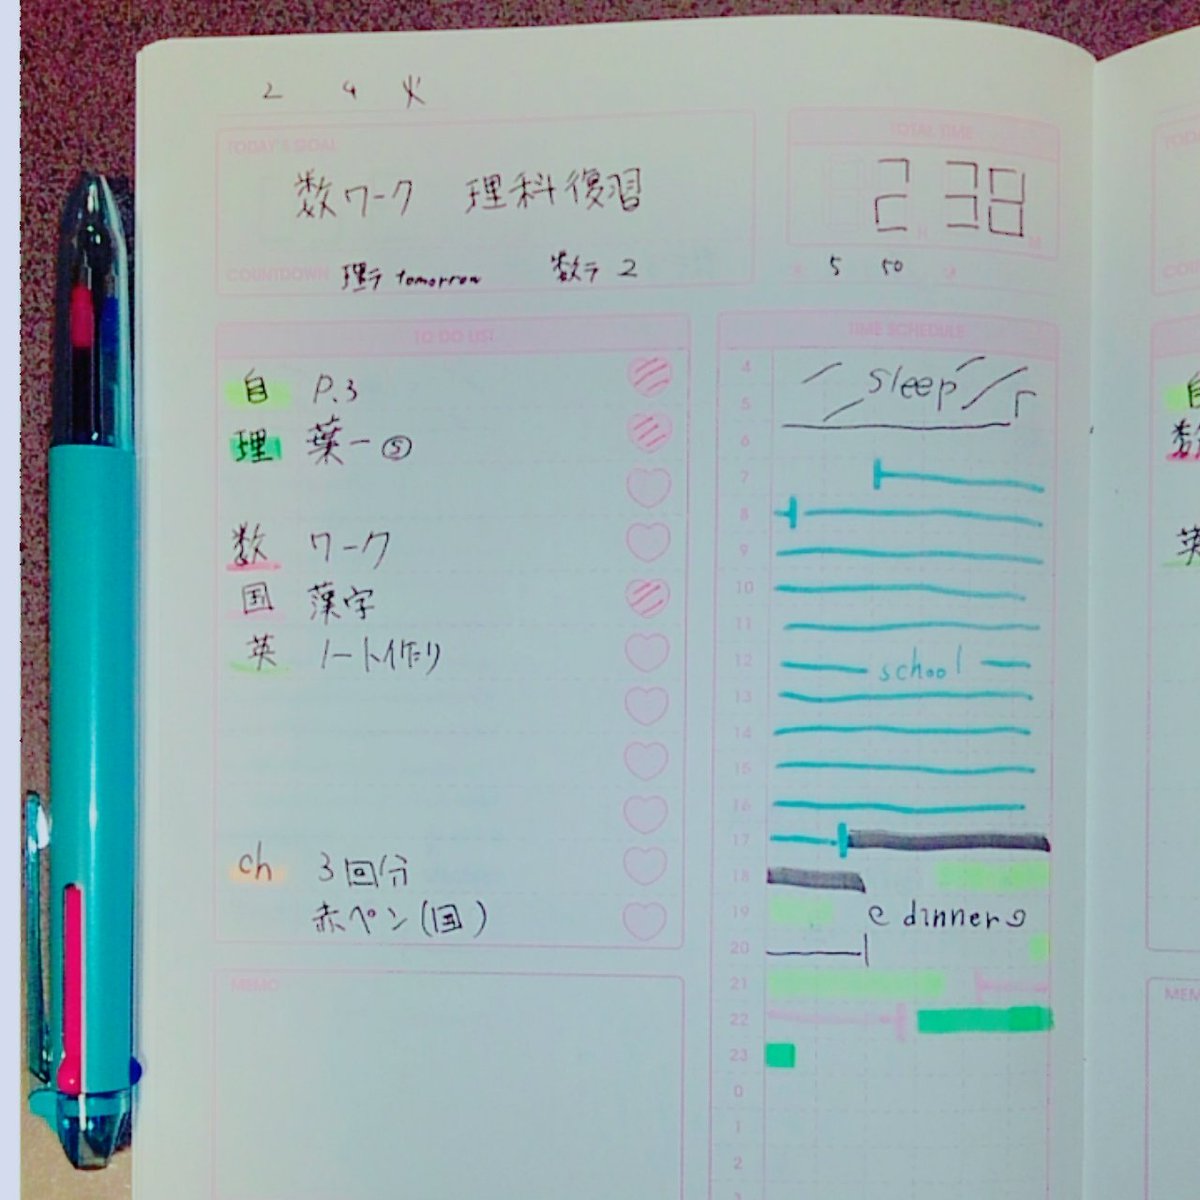 2 4 火
TODAY'S GOAL
数ワーク 理科復習
COUNTDOWN 理テ tomorrow 数テ 2
TOTAL TIME
2 H 38 M
5 50
TO DO LIST
自 P.3
理 葉一 ⑤
数 ワーク
国 漢字
英 ノート作り
ch 3回分
赤ペン(国)
MEMO
TIME SCHEDULE
4 sleep
5
6
7
8
9
10
11
12 school
13
14
15
16
17
18
19 dinner
20
21
22
23
0
1
2
自
数
英